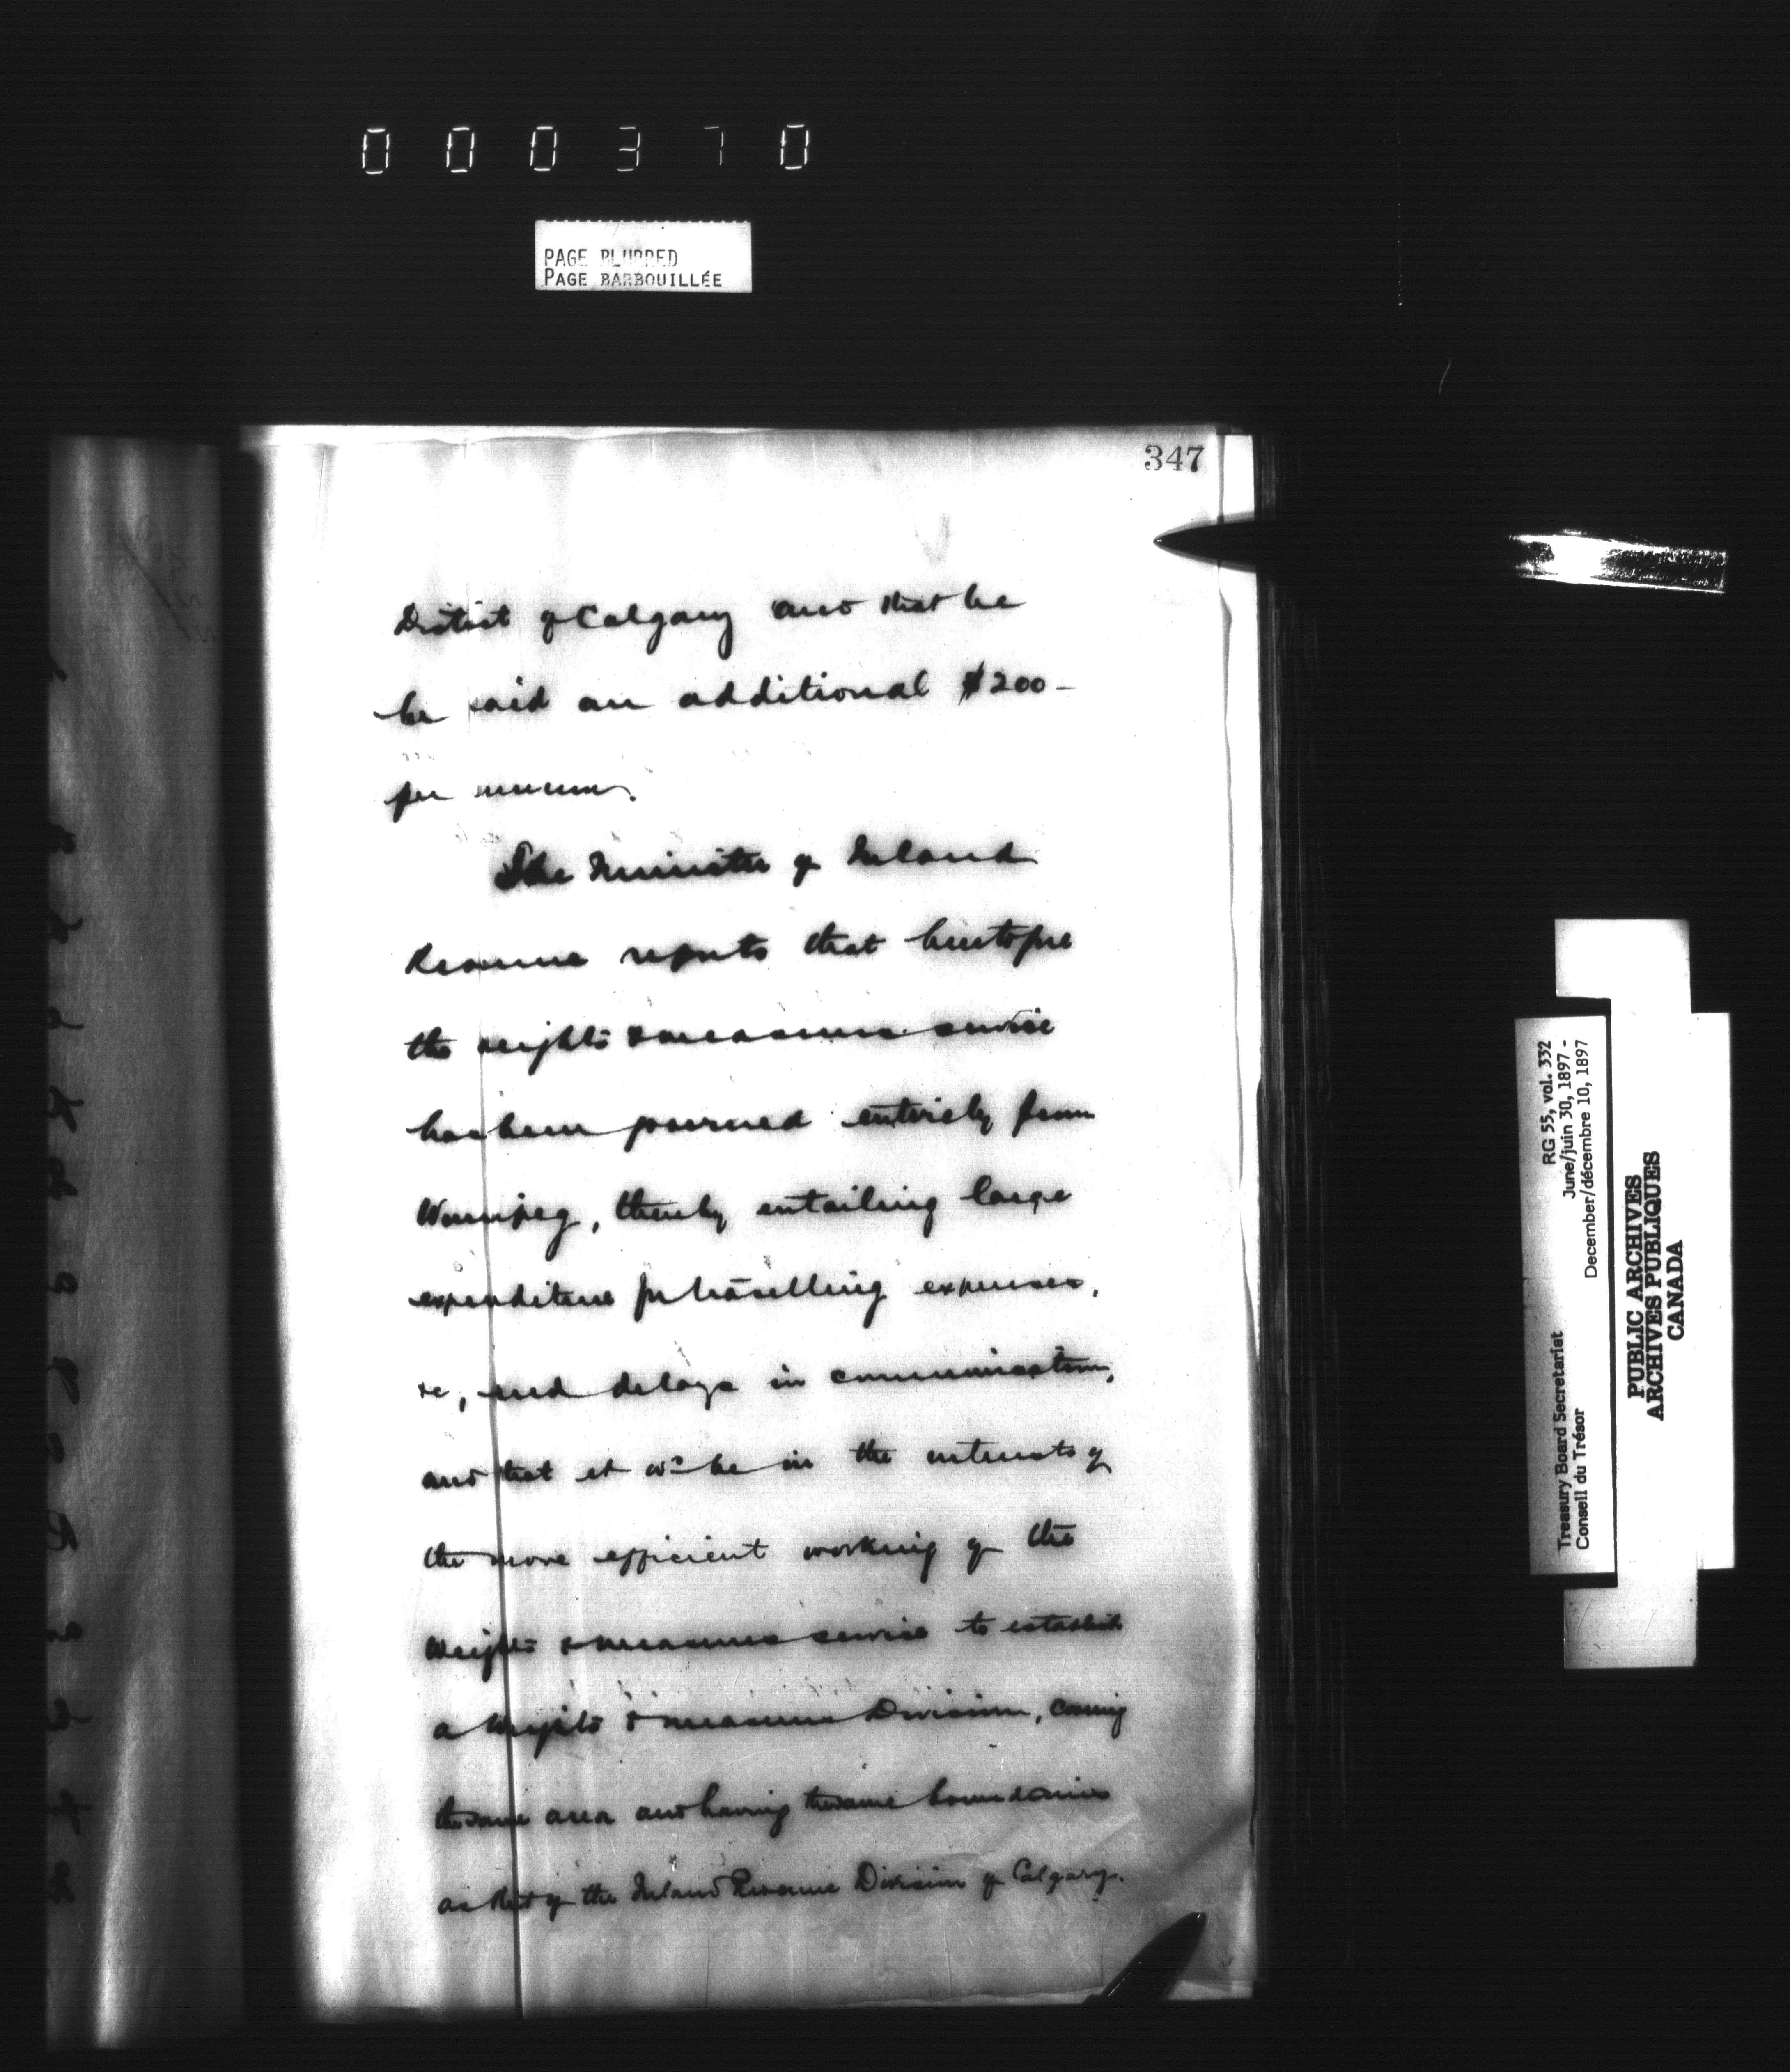 000370
PAGE BLURRED
PAGE BARBOUILLÉE
347
District of Calgary and that he
be paid an additional $200-
per annum.
The Minister of Inland
Revenue reports that heretofore
the weights & measures service
has been entirely from
Winnipeg, thereby entailing large
expenditure for travelling expenses,
&c, and delays in communication,
and that it wd be in the interests of
the more efficient working of the
Weights & measures service to establish
a Weights & measures Division,
the same area and having the same boundaries
as that of the Inland Revenue Division of Calgary.
RG 55, vol. 332
June/juin 30, 1897 -
December/décembre 10, 1897
Treasury Board Secretariat
Conseil du Trésor
PUBLIC ARCHIVES
ARCHIVES PUBLIQUES
CANADA